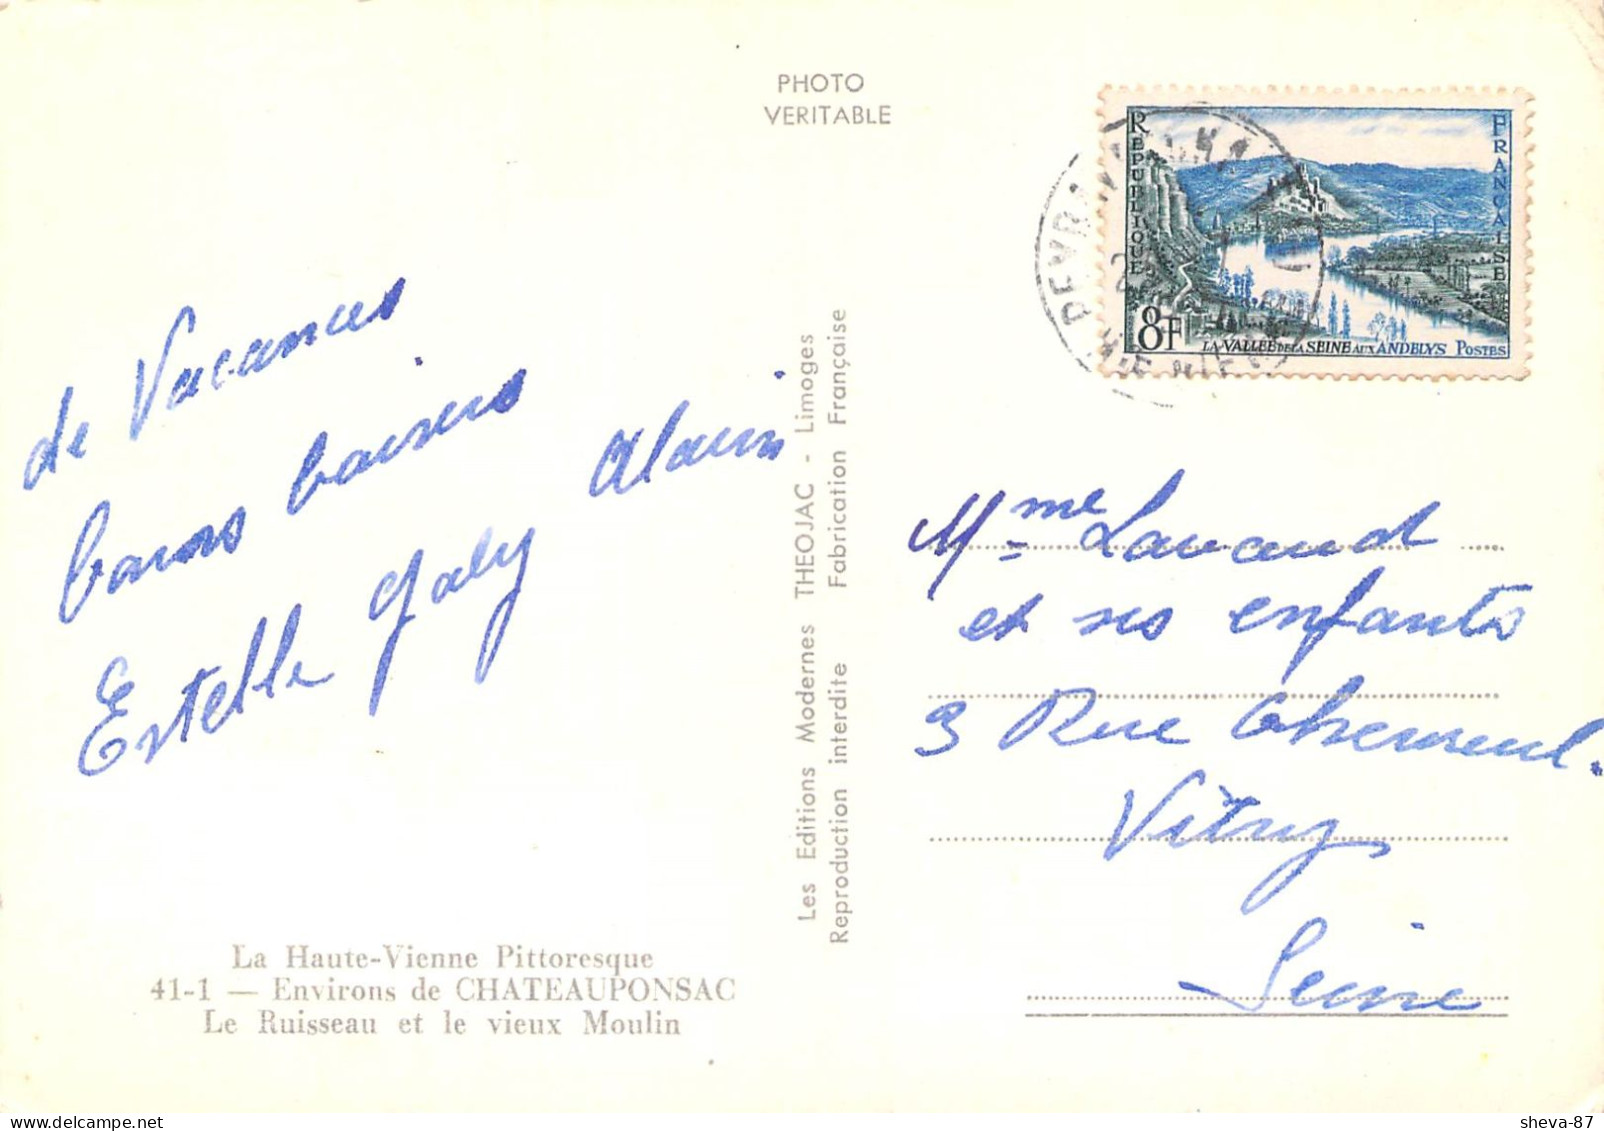 PHOTO
VERITABLE
REPUBLIQUE
FRANÇAISE
8F
LA VALLEE DE LA SEINE AUX ANDELYS POSTES
de Vacances
bons baisers
Estelle Gaby Alain
Les Editions Modernes THEOJAC - Limoges
Reproduction interdite Fabrication Française
Mme Lavaud
et ses enfants
3 Rue
Vitry
Seine
La Haute-Vienne Pittoresque
41-1 — Environs de CHATEAUPONSAC
Le Ruisseau et le vieux Moulin
sheva-87